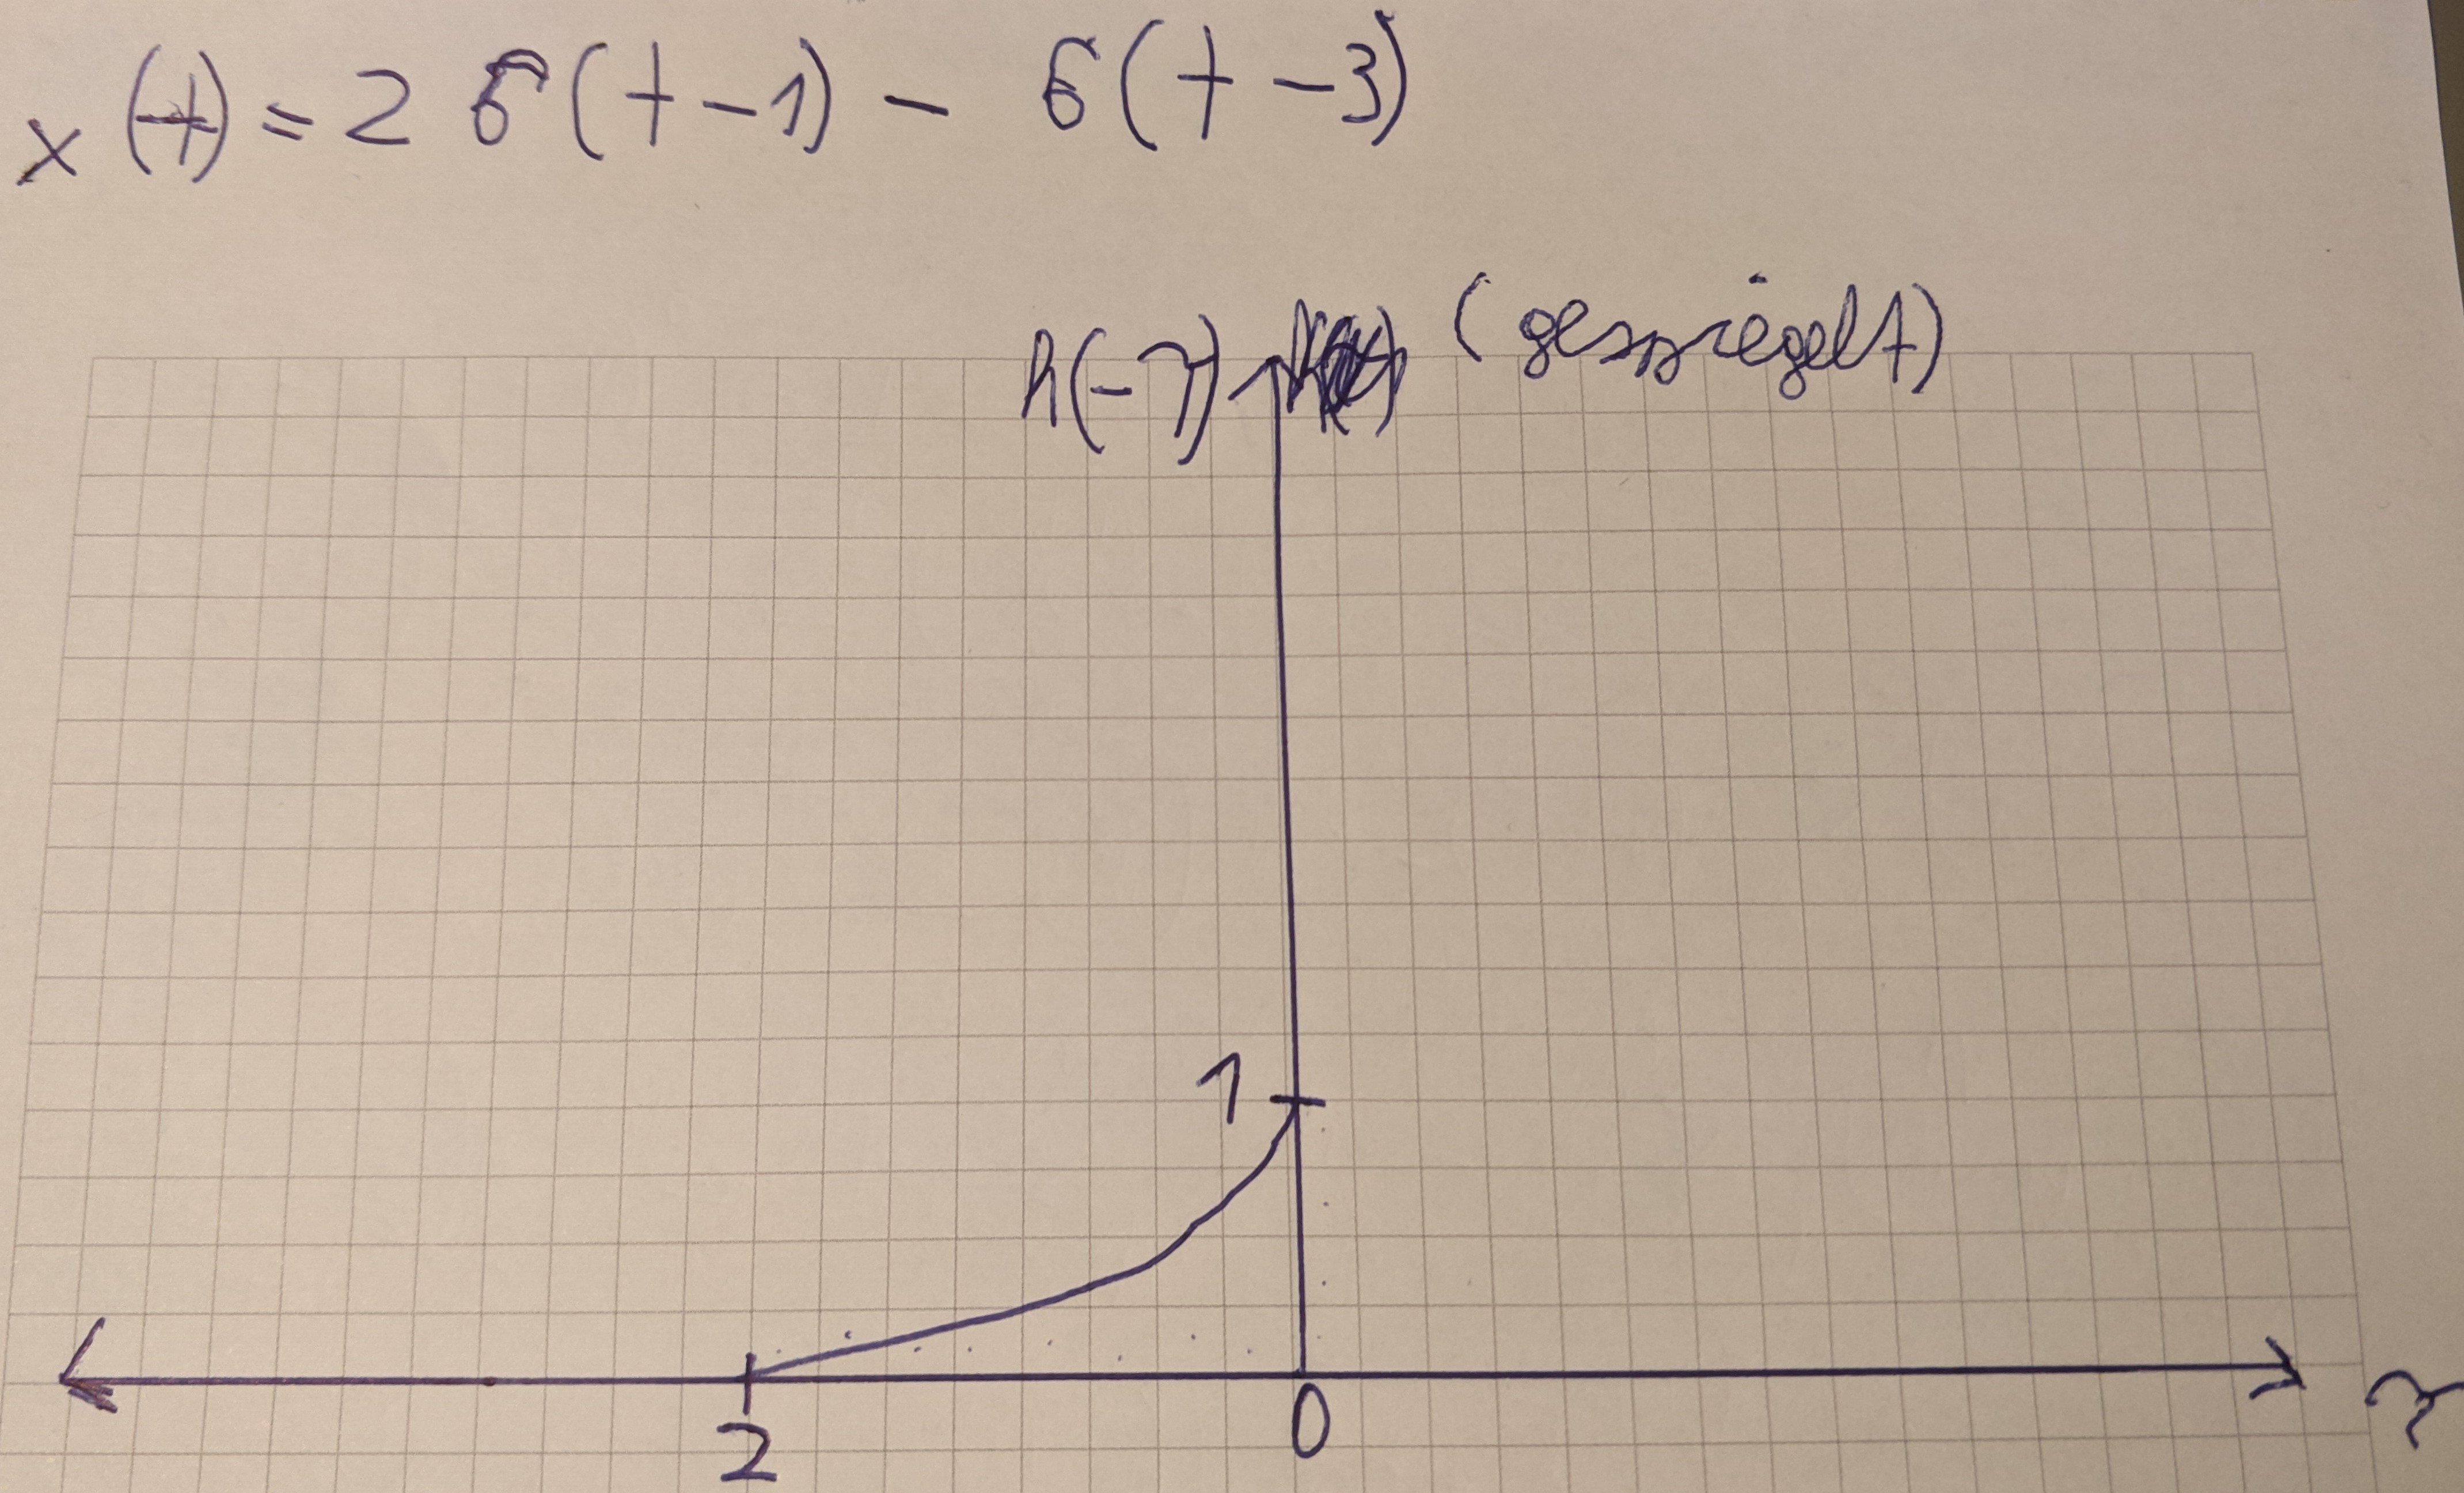 x(t) = 2 δ(t-1) - δ(t-3)
h(-τ) (gespiegelt)
1
2 0 τ